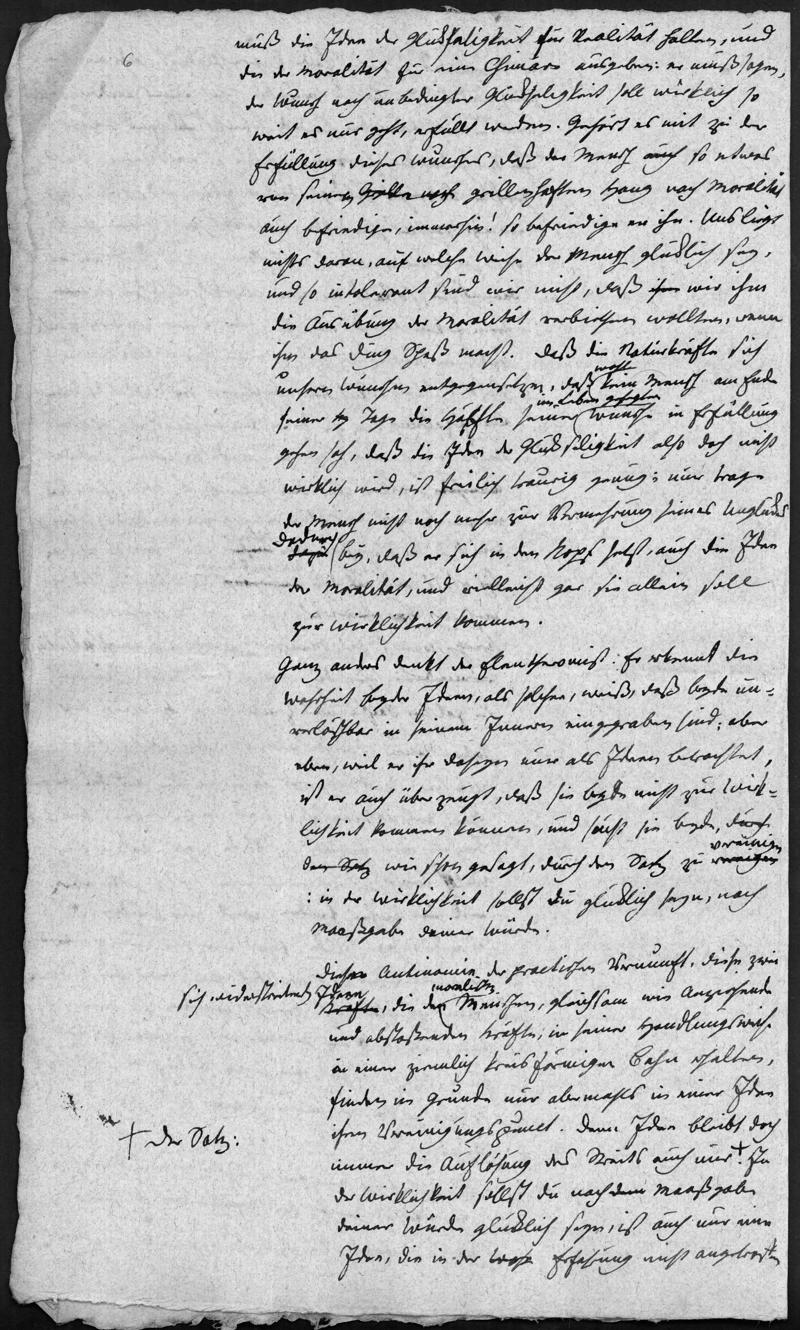 6
muß die Idee der Glükseligkeit für Realität halten, und
die der Moralität für eine Chimäre ausgeben: er muß sagen,
der Wunsch nach unbedingter Glükseligkeit soll wirklich so
weit es nur geht, erfüllt werden. Gehört es mit zu der
Erfüllung dieses Wunsches, daß der Mensch auch so etwas
von seinem grillenhaften Hang nach Moralität
auch befriedige, immerhin! so befriedige er ihn. Uns liegt
nichts daran, auf welche Weise der Mensch glüklich sey,
und so intolerant sind wir nicht, daß ihm wir ihm
die Ausübung der Moralität verbiethen wollten, wenn
ihm das Ding Spaß macht. Daß die Naturkräfte sich
unsern Wünschen entgegensetzen, daß wohl kein Mensch am Ende
seiner Tage die Hälfte seiner im Leben gehegten Wünsche in Erfüllung
gehen sah, daß die Idee der Glükseligkeit also doch nicht
wirklich wird, ist freilich traurig genug: nur trage
der Mensch nicht noch mehr zur Vermehrung seines Unglükes
dadurch
dazu bey, daß er sich in den Kopf setzt, auch die Idee
der Moralität, und vielleicht gar sie allein solle
zur Wirklichkeit kommen.
Ganz anders denkt der Eleutheronist. Er erkennt die
Wahrheit beyder Ideen, als solcher, weiß, daß beyde un=
verlöschbar in seinem Innern eingegraben sind; aber
eben, weil er ihr Daseyn nur als Ideen betrachtet,
ist er auch überzeugt, daß sie beyde nicht zur Wirk=
lichkeit kommen können, und sucht sie beyde, durch
den Satz wie schon gesagt, durch den Satz zu vereinigen
: in der Wirklichkeit sollst du glüklich seyn, nach
Maaßgabe deiner Würde.
Diese Antinomie der practischen Vernunft, diese zwei
sich widerstreitenden Ideen
Kräfte, die den moralischen Menschen, gleichsam wie anziehende
und abstoßende Kräfte, in seiner Handlungsweise
in einer ziemlich kreisförmigen Bahn erhalten,
finden im Grunde nur abermahls in einer Idee
ihren Vereinigungspunct. Denn Idee bleibt doch
immer die Auflösung des Streits auch nur †. In
† der Satz:
der Wirklichkeit sollst du nach dem Maaßgabe
deiner Würde glüklich seyn, ist auch nur eine
Idee, die in der Erfahrung nicht angetroffen